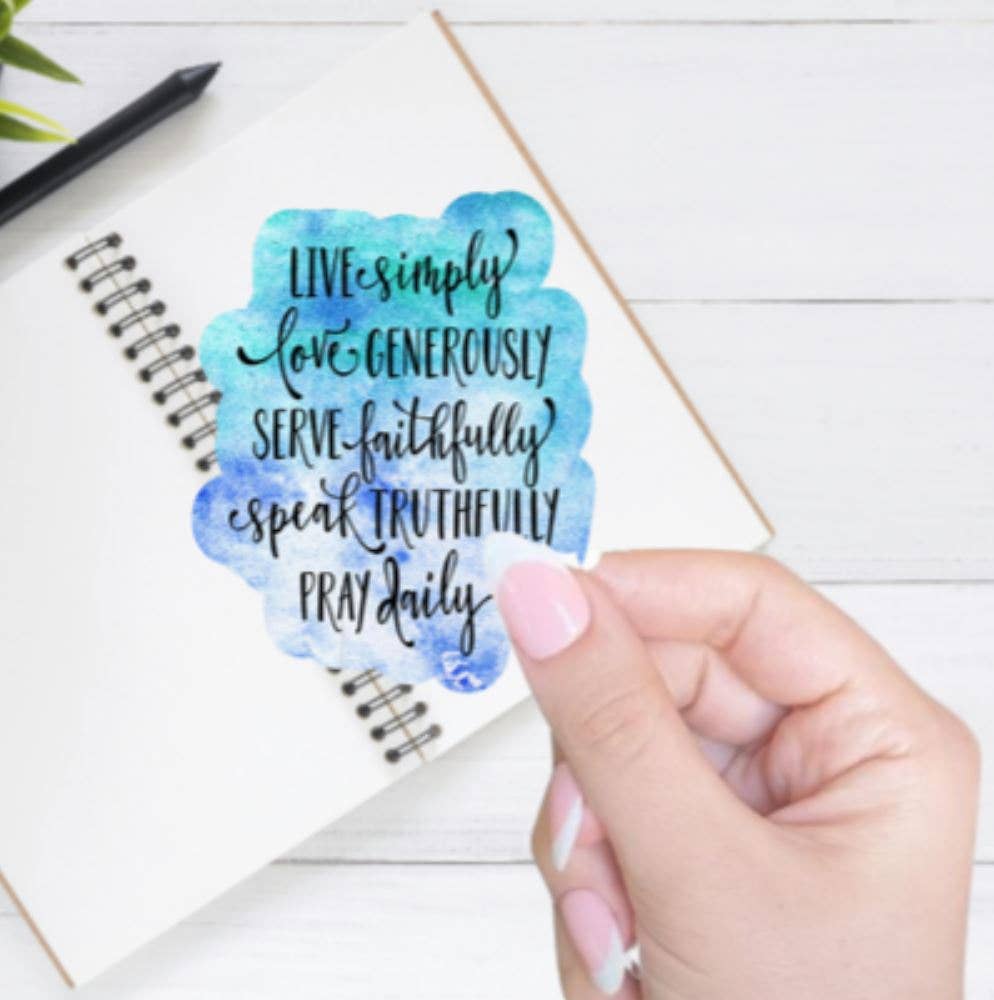 LIVE simply
love GENEROUSLY
SERVE faithfully
speak TRUTHFULLY
PRAY daily